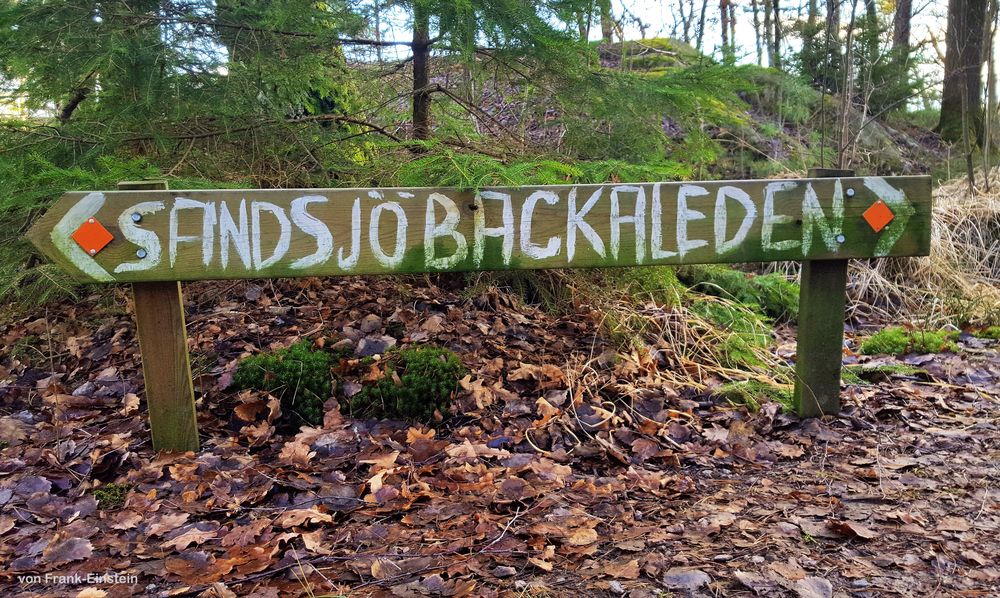 SANDSJÖBACKALEDEN
von Frank-Einstein